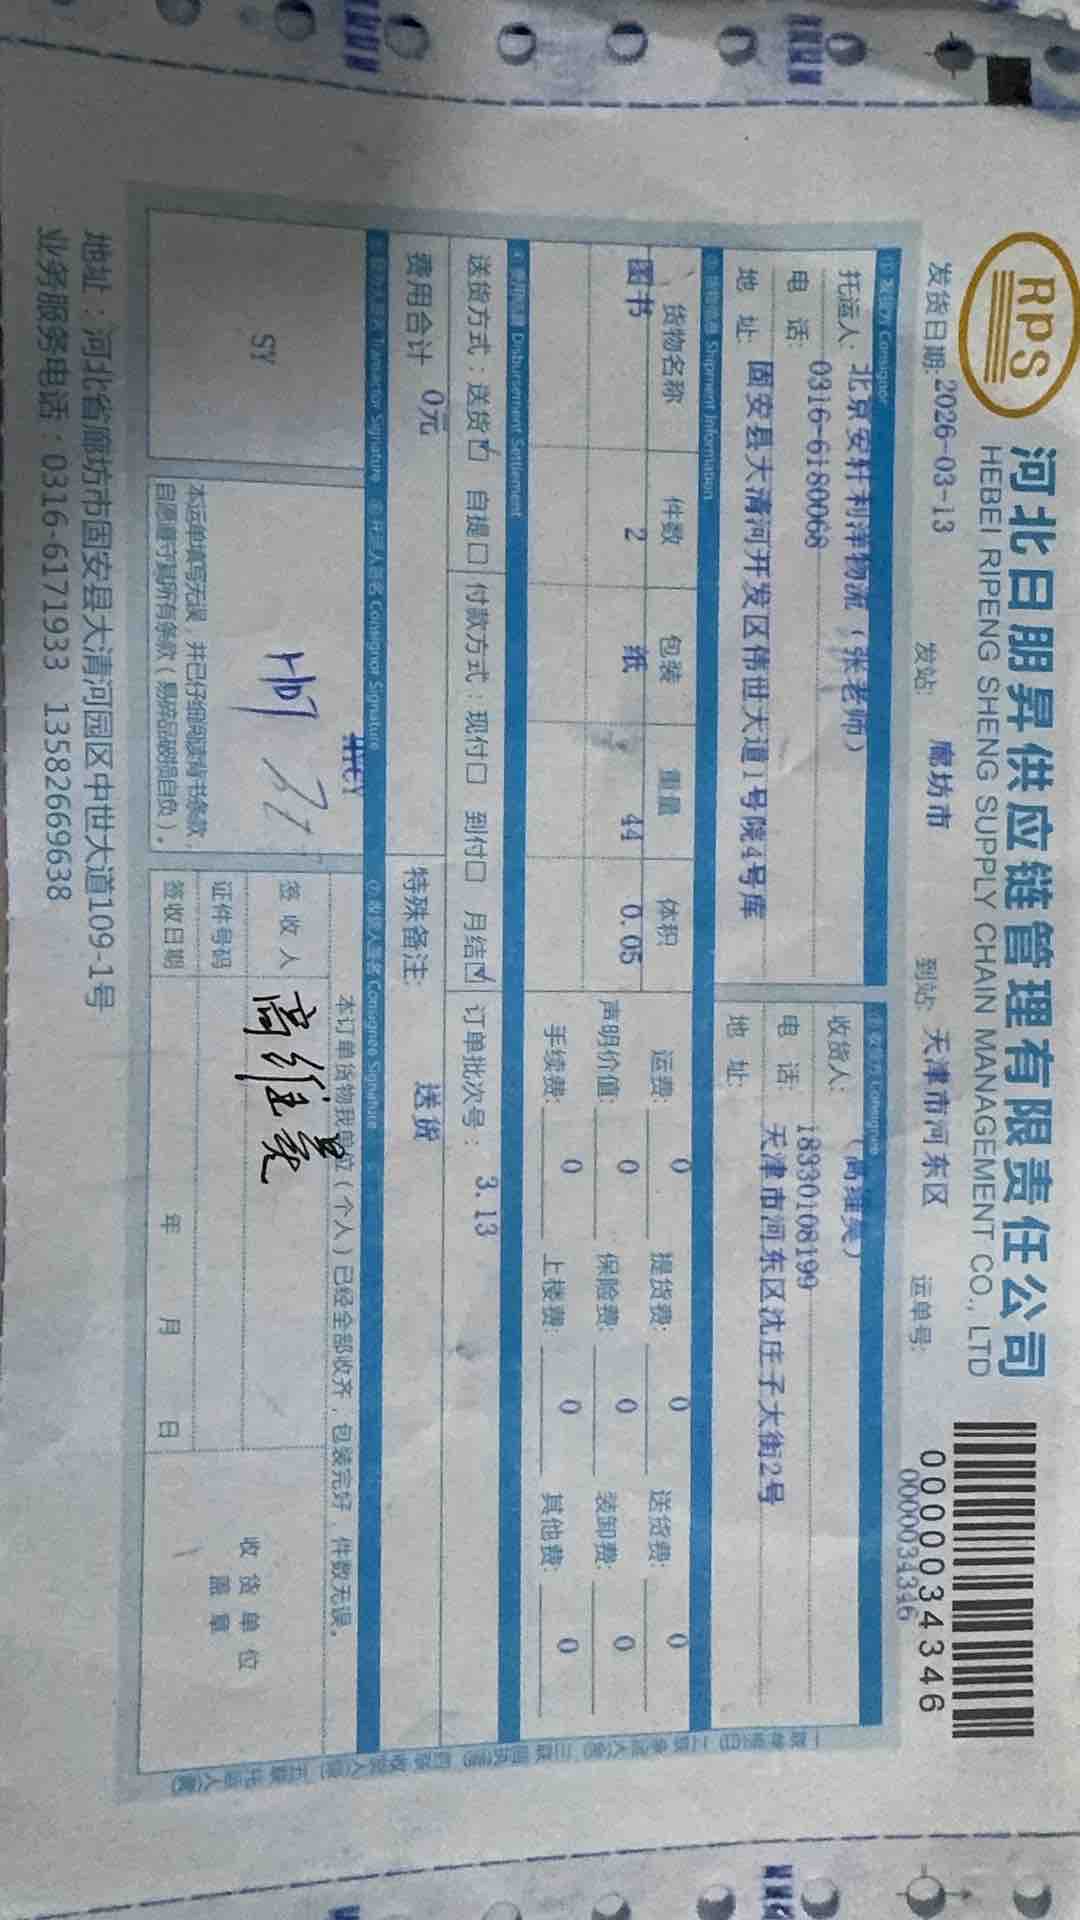 RPS
河北日朋昇供应链管理有限责任公司
HEBEI RIPENG SHENG SUPPLY CHAIN MANAGEMENT CO., LTD
0000034346
发货日期: 2026-03-13 发站: 廊坊市 到站: 天津市河东区 运单号: 0000034346
Consignor
Consignee
托运人: 北京安轩利洋物流（张老师）
电 话: 0316-6180068
地 址: 固安县大清河开发区伟世大道1号院4号库
收货人: （高维美）
电 话: 18330108199
地 址: 天津市河东区沈庄子大街2号
Shipment Information
货物名称 件数 包装 重量 体积
图书 2 纸 44 0.05
运费: 0 提货费: 0 送货费: 0
声明价值: 0 保险费: 0 装卸费: 0
手续费: 0 上楼费: 0 其他费: 0
Disbursement Settlement
送货方式：送货☑ 自提口 付款方式：现付口 到付口 月结☑ 订单批次号： 3.13
费用合计 0元 特殊备注: 送货
Transactor Signature
Consignor Signature
⑦收货人签名 Consignee Signature
SY
本运单填写无误，并已仔细阅读背书条款，
自愿遵守其所有条款（易碎品破损自负）。
本订单货物我单位（个人）已经全部收齐，包装完好，件数无误。
签 收 人 高维美
证件号码
签收日期 年 月 日
收 货 单 位
盖 章
地址：河北省廊坊市固安县大清河园区中世大道109-1号
业务服务电话：0316-6171933 13582669638